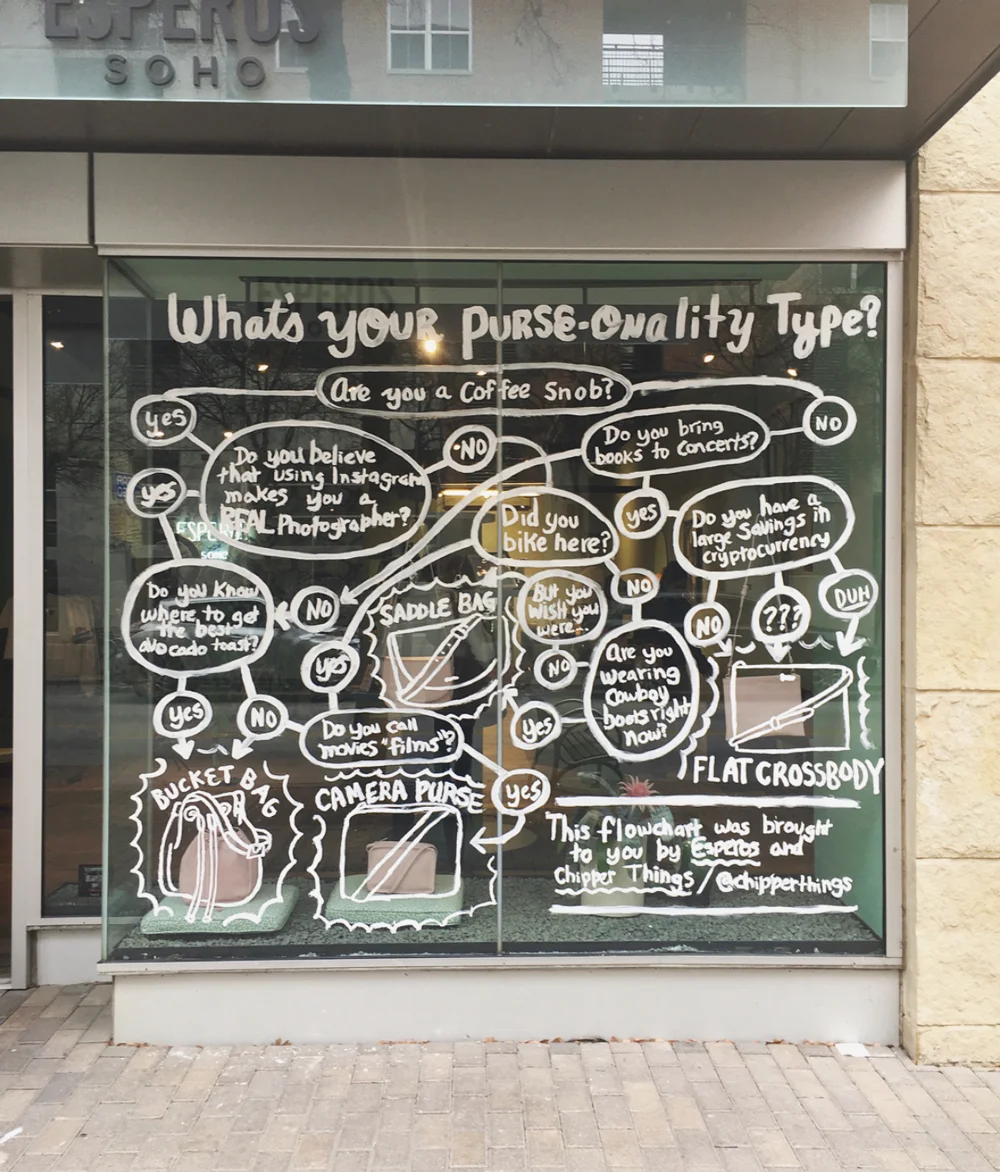 ESPEROS
SOHO
ESPEROS
What's YOUR PURSE-ONality Type?
Are you a Coffee Snob?
yes
NO
Do you believe
that using Instagram
makes you a
REAL Photographer?
NO
Do you bring
books to concerts?
yes
Did you
bike here?
yes
Do you have a
large Savings in
cryptocurrency
ESPEROS
SOHO
Do you Know
where to get
the best
avocado toast?
NO
SADDLE BAG
But you
Wish you
were...
NO
NO
???
DUH
yes
NO
Are you
wearing
Cowboy
boots right
now?
yes
NO
Do you call
movies "films"?
yes
FLAT CROSSBODY
BUCKET BAG
CAMERA PURSE
yes
This flowchart was brought
to you by Esperos and
Chipper Things / @chipperthings